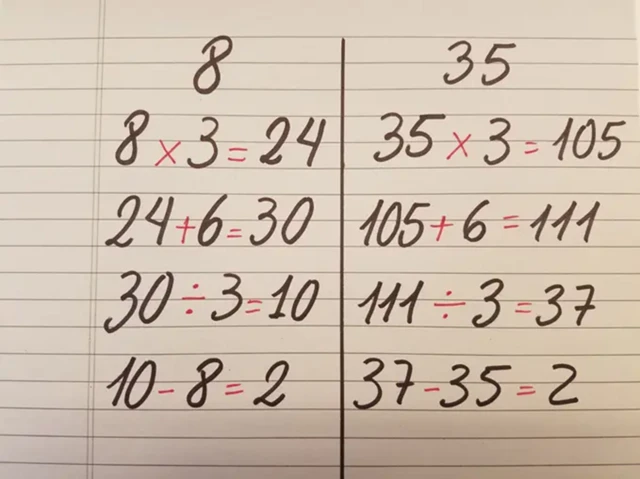 8
8 × 3 = 24
24 + 6 = 30
30 ÷ 3 = 10
10 - 8 = 2
35
35 × 3 = 105
105 + 6 = 111
111 ÷ 3 = 37
37 - 35 = 2